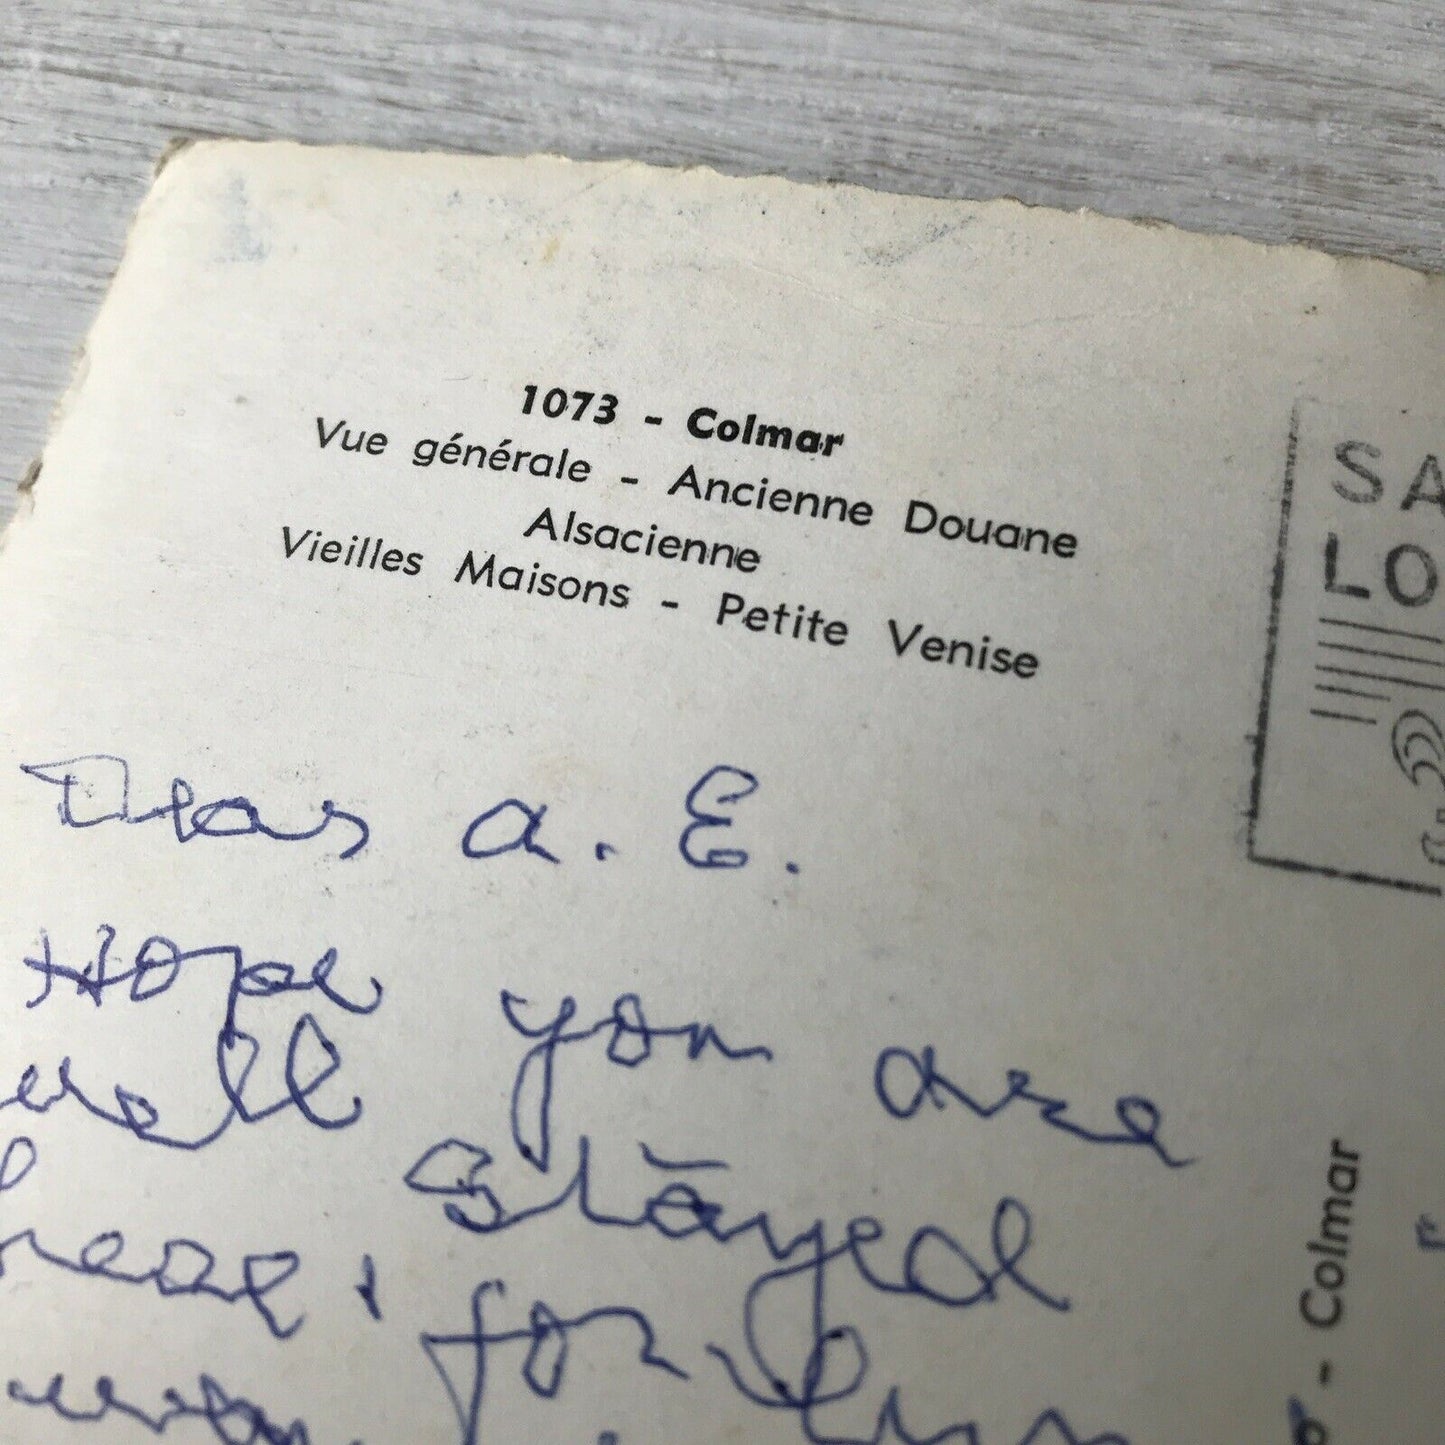 1073 - Colmar
Vue générale - Ancienne Douane
Alsacienne
Vieilles Maisons - Petite Venise
SA
LO
Dear a. E.
Hope you are
well
stayed
here for
- Colmar